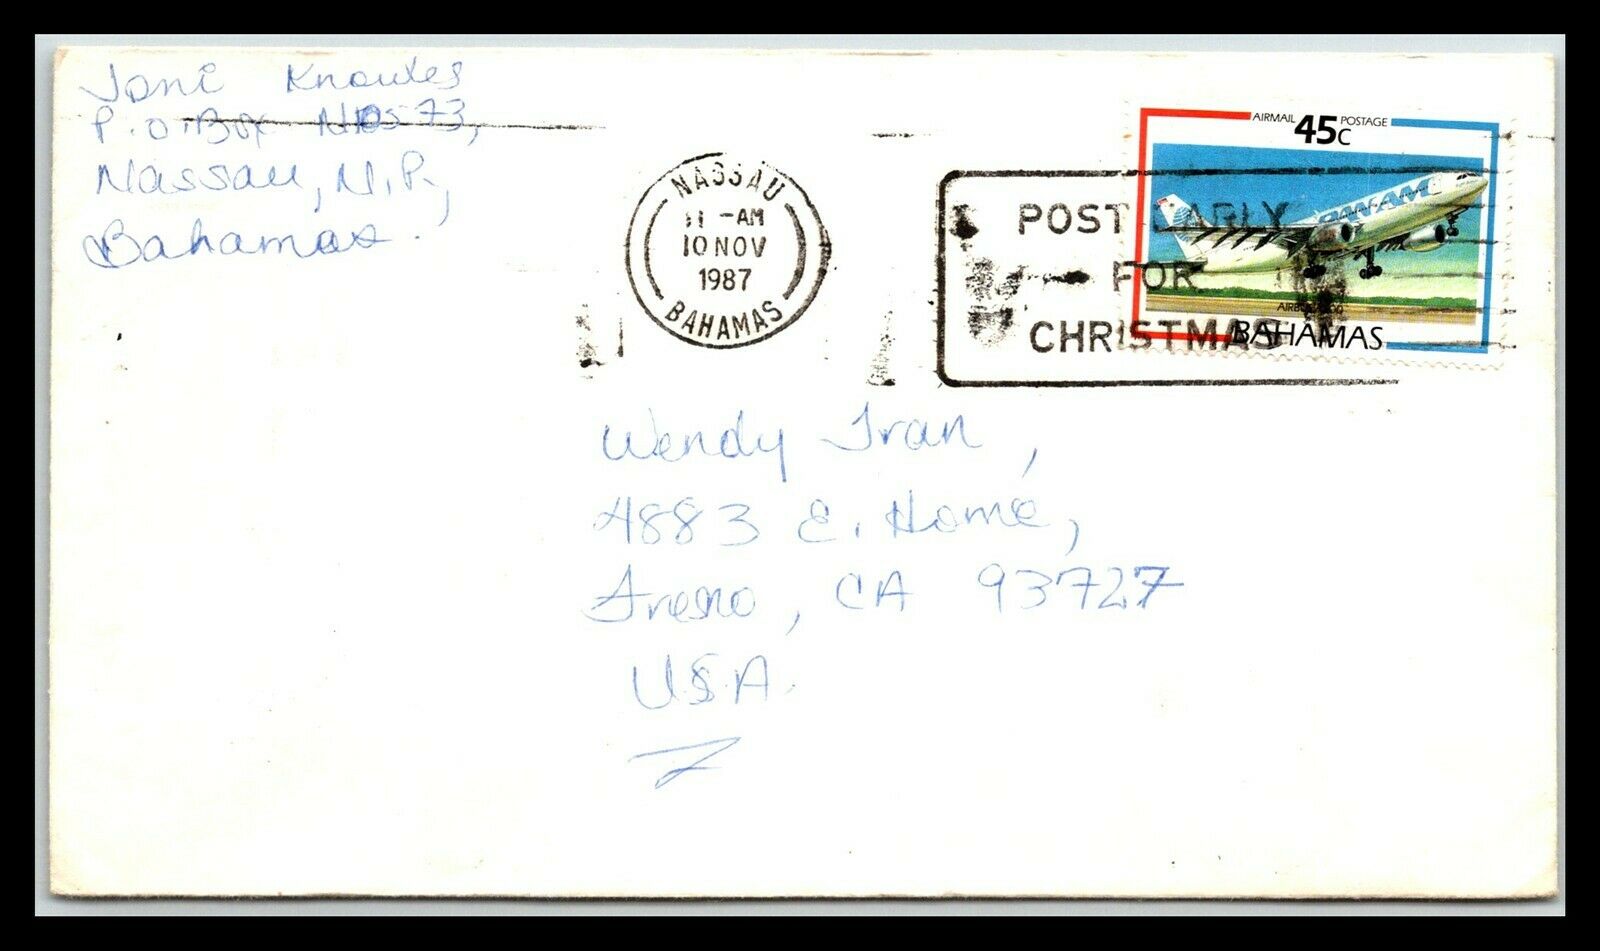 Joni Knowles
P.O. Box
Nassau, N.P.,
Bahamas.
NASSAU
11 -AM
10 NOV
1987
BAHAMAS
POST EARLY
FOR
CHRISTMAS
AIRMAIL 45c POSTAGE
PAN AM
BAHAMAS
Wendy Tran,
4883 E. Home,
Fresno, CA 93727
U.S.A.